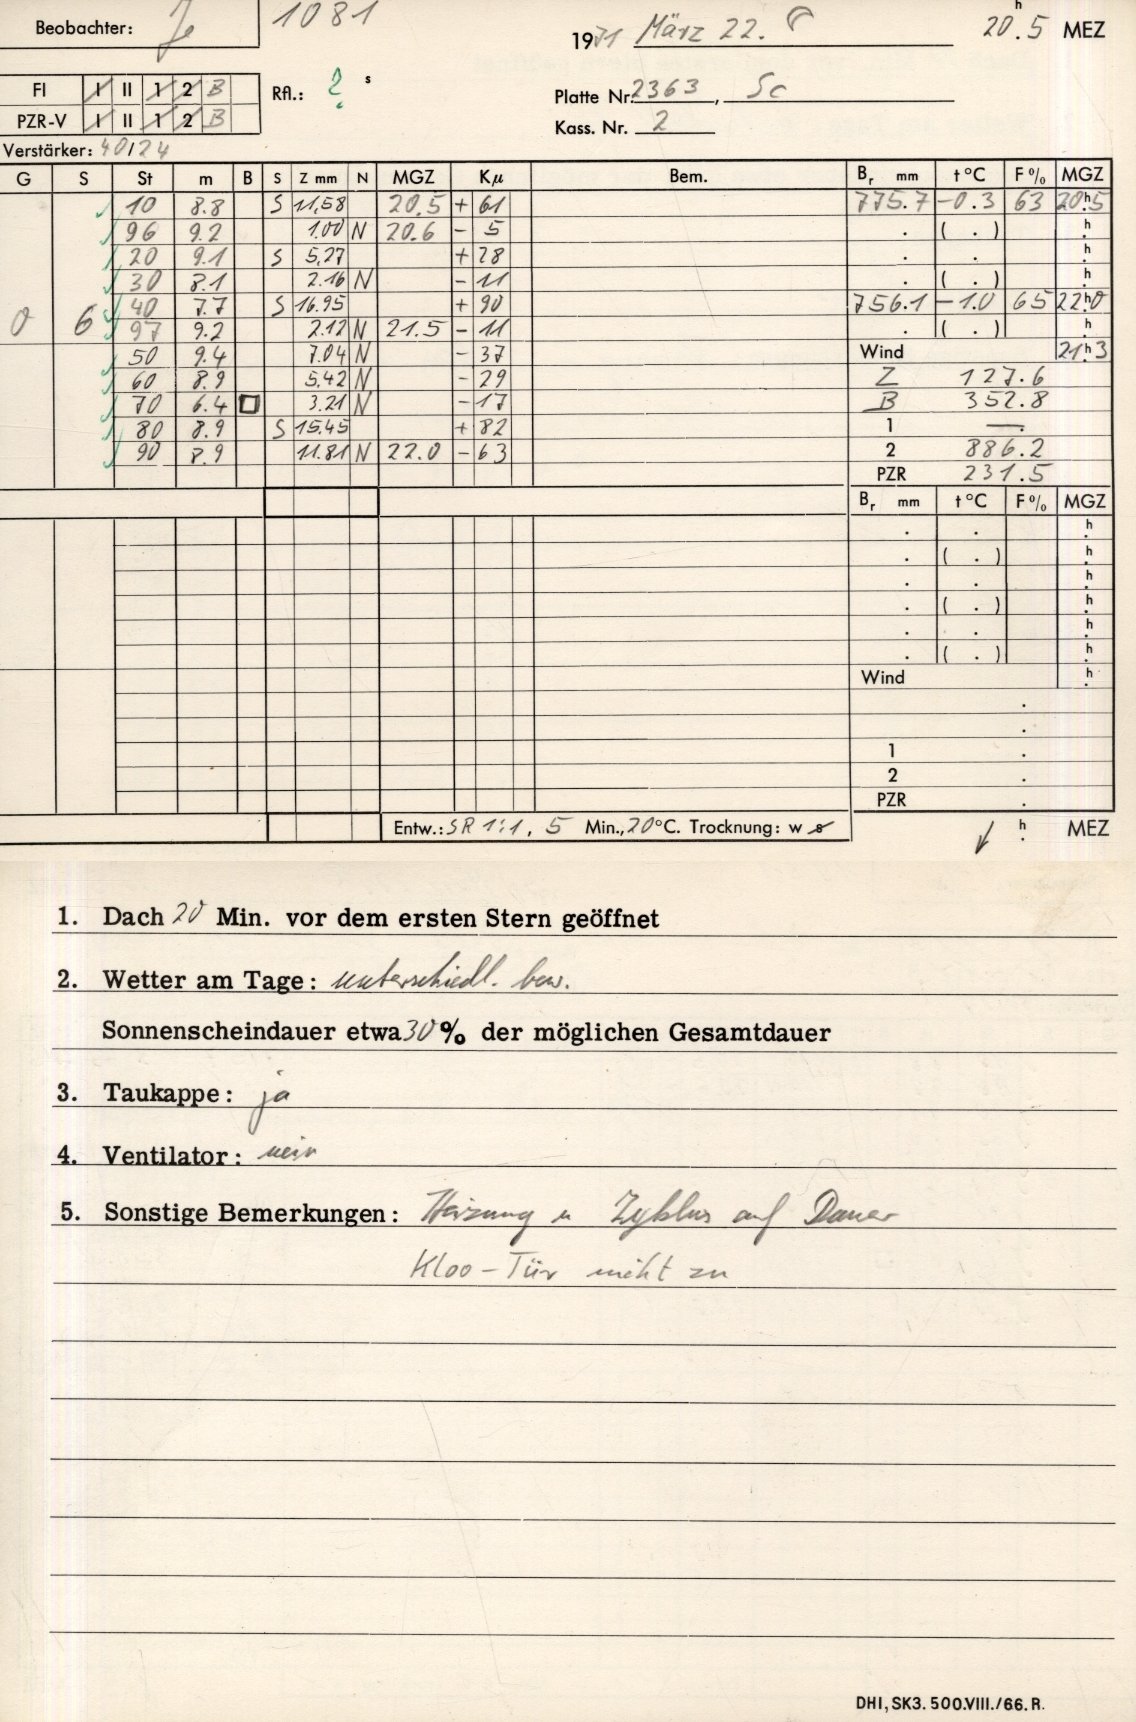 Beobachter: 1081 1971 März 22. 20.5 h MEZ
FI I II 1 2 B Rfl.: ? s Platte Nr. 2363, Sc
PZR-V I II 1 2 B Kass. Nr. 2
Verstärker: 40/24
G S St m B S Z mm N MGZ Kµ Bem. Br mm t °C F % MGZ
10 8.8 S 11,58 20.5 + 61 775.7 -0.3 63 20h5
96 9.2 1.00 N 20.6 - 5 . ( . ) h
20 9.1 S 5,27 + 28 . . h
30 8.1 2.16 N - 11 . ( . ) h
0 6 40 7.7 S 16.95 + 90 756.1 -1.0 65 22h0
97 9.2 2.12 N 21.5 - 11 . ( . ) h
50 9.4 7.04 N - 37 Wind 21h3
60 8.9 5.42 N - 29 Z 127.6
70 6.4 3.21 N - 17 B 352.8
80 8.9 S 15.45 + 82 1 —.
90 8.9 11.81 N 22.0 - 63 2 886.2
PZR 231.5
Br mm t °C F % MGZ
. . h
. ( . ) h
. . h
. ( . ) h
. . h
. ( . ) h
Wind h
.
.
1 .
2 .
PZR .
Entw.: SR 1:1, 5 Min., 20 °C. Trocknung: w s h MEZ
1. Dach 20 Min. vor dem ersten Stern geöffnet
2. Wetter am Tage: unterschiedl. bew.
Sonnenscheindauer etwa 30 % der möglichen Gesamtdauer
3. Taukappe: ja
4. Ventilator: nein
5. Sonstige Bemerkungen: Heizung u Zyklus auf Dauer
Kloo-Tür nicht zu
DHI, SK3. 500.VIII./66. R.